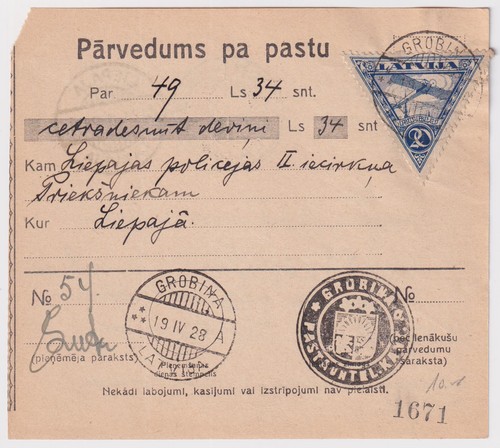 Pārvedums pa pastu
GROBIŅA
LATVIJA
20
Par 49 Ls 34 snt.
cetradesmit deviņi Ls 34 snt
Kam Liepajas policejas II iecirkņa
Priekšniekam
Kur Liepajā.
№ 54
(pieņēmēja paraksts)
GROBIŅA
19 IV 28 A
LATVIJA
Pieņemšanas
dienas štempelis
GROBIŅA
№
(pēc ienākušu
pārvedumu
saraksta)
Nekādi labojumi, kasijumi vai izstrīpojumi nav pielaisti.
1671